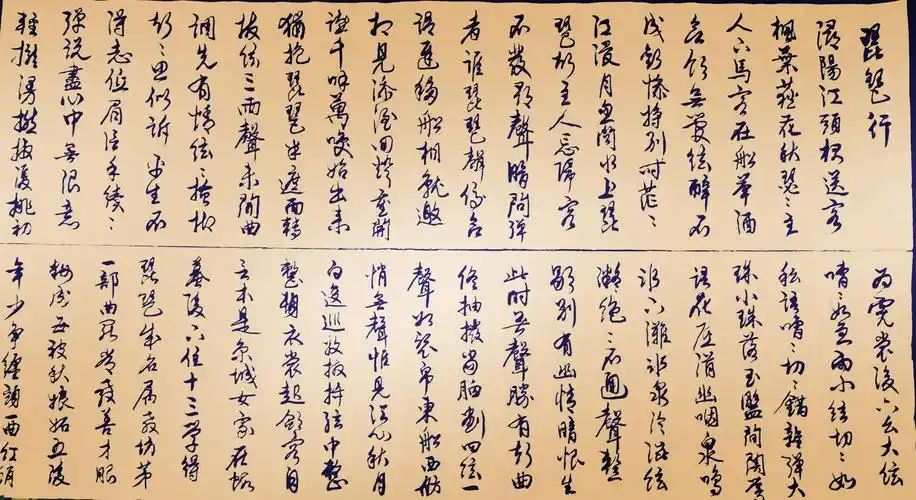 琵琶行
潯陽江頭夜送客
楓葉荻花秋瑟〻主
人下馬客在船舉酒
欲飲無管絃醉不
成歡慘將別別時茫〻
江浸月忽聞水上琵
琶聲主人忘歸客
不發尋聲暗問彈
者誰琵琶聲停欲
語遲移船相就邀
相見添酒回燈重開
讌千呼萬喚始出來
猶抱琵琶半遮面轉
軸撥絃三兩聲未成曲
調先有情絃〻掩抑
聲〻思似訴平生不
得志低眉信手續〻
彈說盡心中無限意
輕攏慢撚抹復挑初
為霓裳後六幺大絃
嘈〻如急雨小絃切〻如
私語嘈〻切〻錯雜彈大
珠小珠落玉盤間關鶯
語花底滑幽咽泉流
冰下灘冰泉冷澀絃
凝絕〻不通聲暫
歇別有幽情暗恨生
此時無聲勝有聲曲
終抽撥當胸劃四絃一
聲如裂帛東船西舫
悄無聲惟見江心秋月
白沉吟放撥插絃中整
頓衣裳起斂容自
言本是京城女家在蝦
蟇陵下住十三學得
琵琶成名屬教坊第
一部曲罷常教善才服
妝成每被秋娘妒五陵
年少爭纏頭一曲紅綃